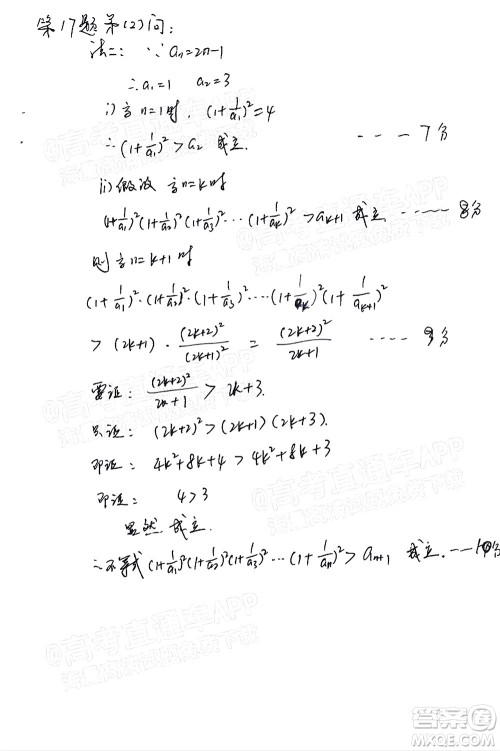 第17题第(2)问:
法二: ∵ aₙ=2n-1
∴a₁=1 a₂=3
i) 当n=1时, (1+1/a₁)²=4
∴(1+1/a₁)²>a₂ 成立. ---- 7分
ii) 假设 当n=k时
(1+1/a₁)²(1+1/a₂)²(1+1/a₃)²···(1+1/aₖ)²>aₖ₊₁ 成立 ------ 8分
则当n=k+1时
(1+1/a₁)²·(1+1/a₂)²·(1+1/a₃)²····(1+1/aₖ)²(1+1/aₖ₊₁)²
> (2k+1)·(2k+2)²/(2k+1)² = (2k+2)²/2k+1 ---- 9分
需证: (2k+2)²/2k+1 > 2k+3.
只证: (2k+2)²>(2k+1)(2k+3).
即证: 4k²+8k+4>4k²+8k+3
即证: 4>3
显然成立.
∴不等式(1+1/a₁)²(1+1/a₂)²(1+1/a₃)²···(1+1/aₙ)²>aₙ₊₁ 成立. ---10分
@高考直通车APP
@高考直通车APP
@高考直通车APP
答案圈
MXQE.COM